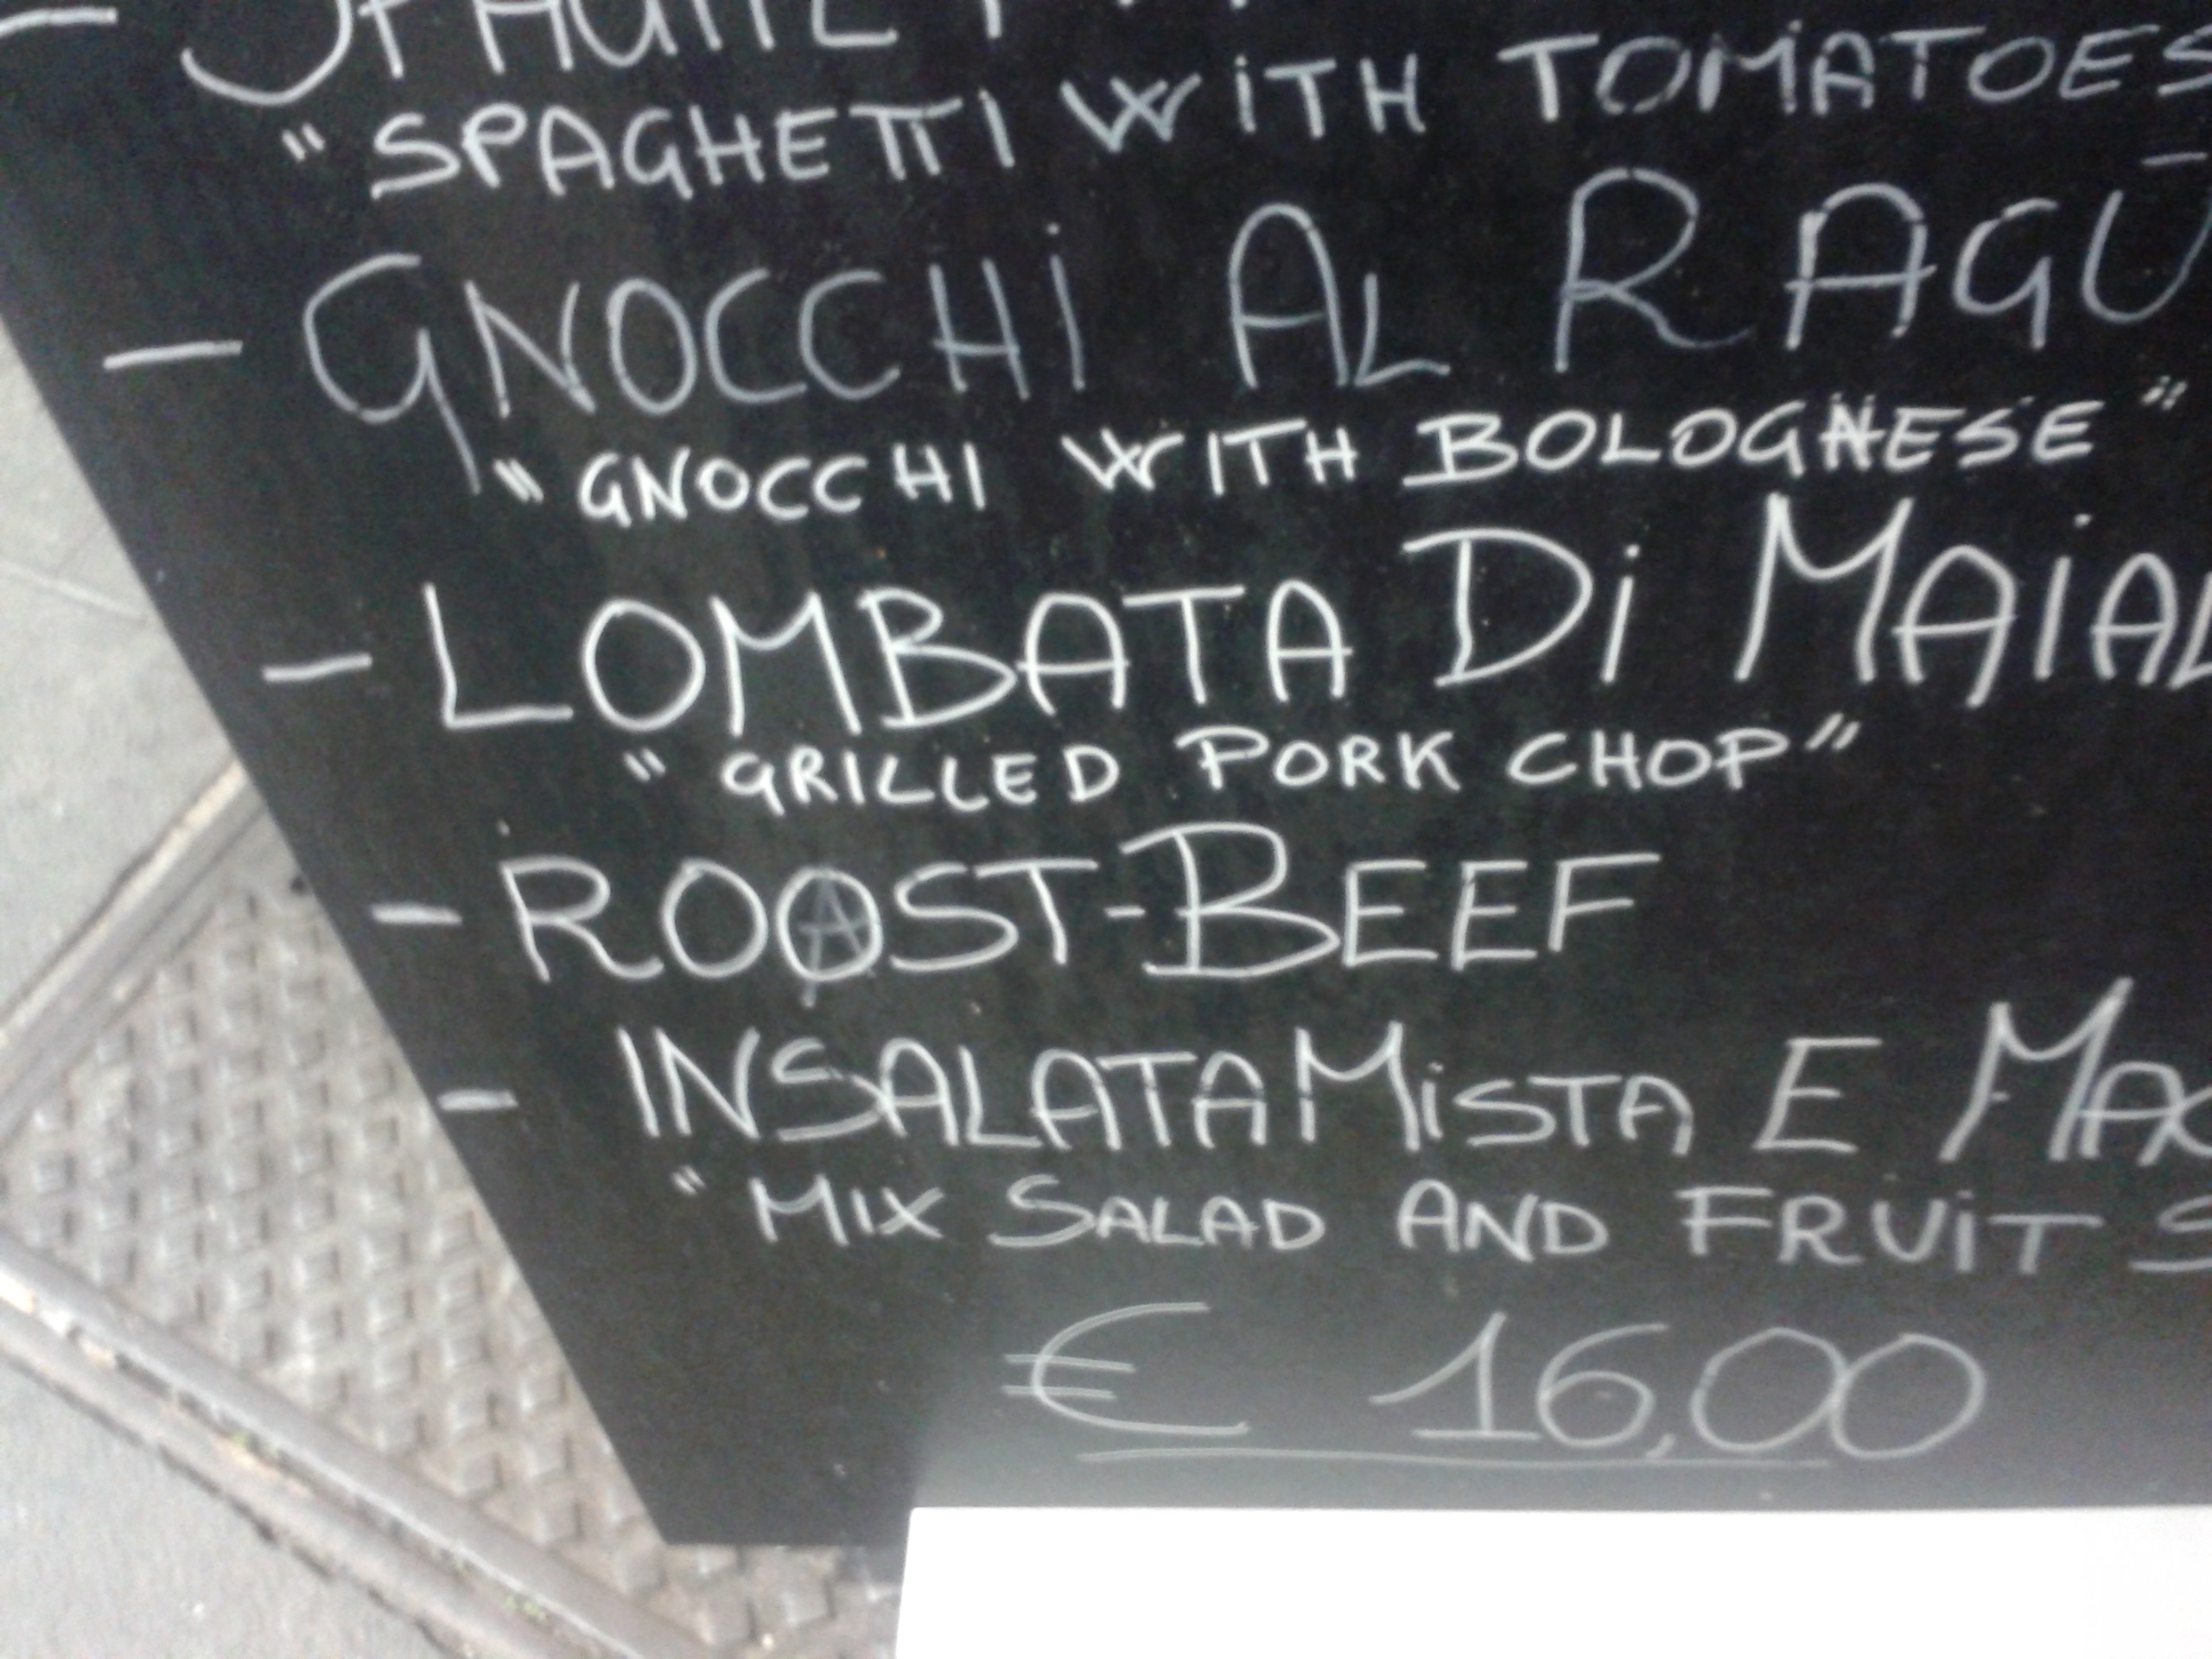 " SPAGHETTI WITH TOMATOES
- GNOCCHI AL RAGÙ
" GNOCCHI WITH BOLOGNESE "
- LOMBATA Di
" GRILLED PORK CHOP "
- ROOST-BEEF
- INSALATA MiSTA E
" MIX SALAD AND FRUiT
€ 16,00